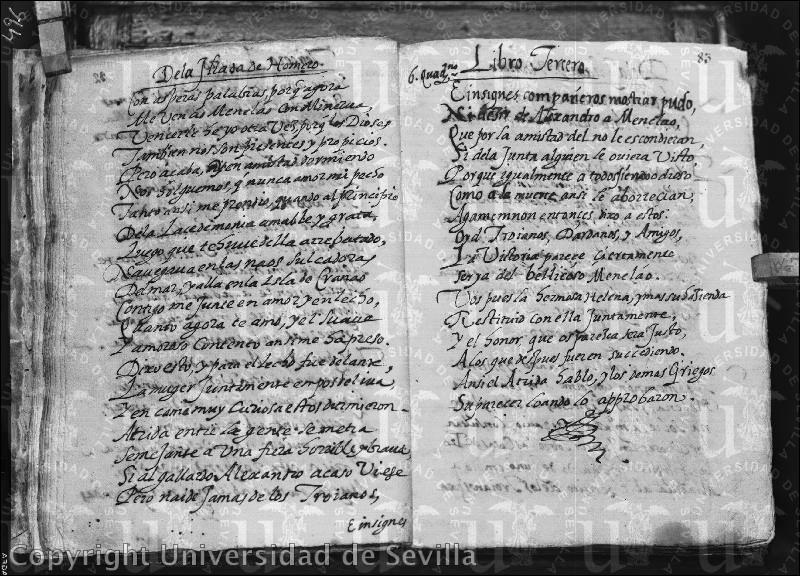 De la Iliada de Homero.
Con asperas palabras, porq̃ agora
Me Vencio Menelao con Minerua,
Vencerle he yo otra Vez, porq̃ los Dioses
Tambien nos son presentes y propicios.
Pero acaba, en amistad durmiendo
Nos holguemos, q̃ nunca amor mi pecho
Tanto ansi me prendio, quando al principio
De la Lacedemonia amable y grata,
Luego que te huue della arrebatado,
Nauegaua en las naos sulcadoras
Del mar, y alla en la Isla de Cranao
Contigo me junte en amor y en lecho,
Quanto agora te amo, y el suaue
Y amoroso contento ansi me ha preso.
Dixo esto, y para el lecho fue delante,
La muger juntamente en pos del iua,
Y en cama muy curiosa estos durmieron.
Atrida entre la gente se metia
Semejante a Una fiera horrible y braua,
Si al gallardo Alexandro acaso Viese
Pero naide jamas de los Troianos,
Einsignes
6. quad.no
Libro Tercero.
83
Einsignes compañeros mostrar pudo,
Ni dezir de Alexandro a Menelao,
Que por la amistad del no le escondieran,
Si de la Junta alguien le ouiera Visto,
Porque igualmente a todos siendo odioso
Como a la muerte ansi le aborrecian,
Agamemnon entonces dixo a estos:
Oyd Troianos, Dardanos, y Amigos,
La Vitoria parece ciertamente
Ser ya del bellicoso Menelao.
Vos pues la hermosa Helena, y mas su hazienda
Restituid con ella Juntamente,
Y el honor que os parezca sera Justo,
A los que despues fueren succediendo.
Ansi el Atrida hablo, y los demas Griegos
Su parecer loando lo approbaron.
Copyright Universidad de Sevilla